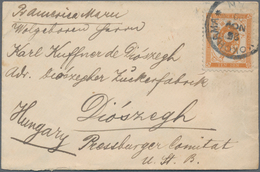 P. America Maru
Wolgeboren Herrn
Karl Kuffner de Diószegh
Adr. Diószegher Zuckerfabrik
Diószegh
Hungary
Pressburger Comitat
U. S. B.